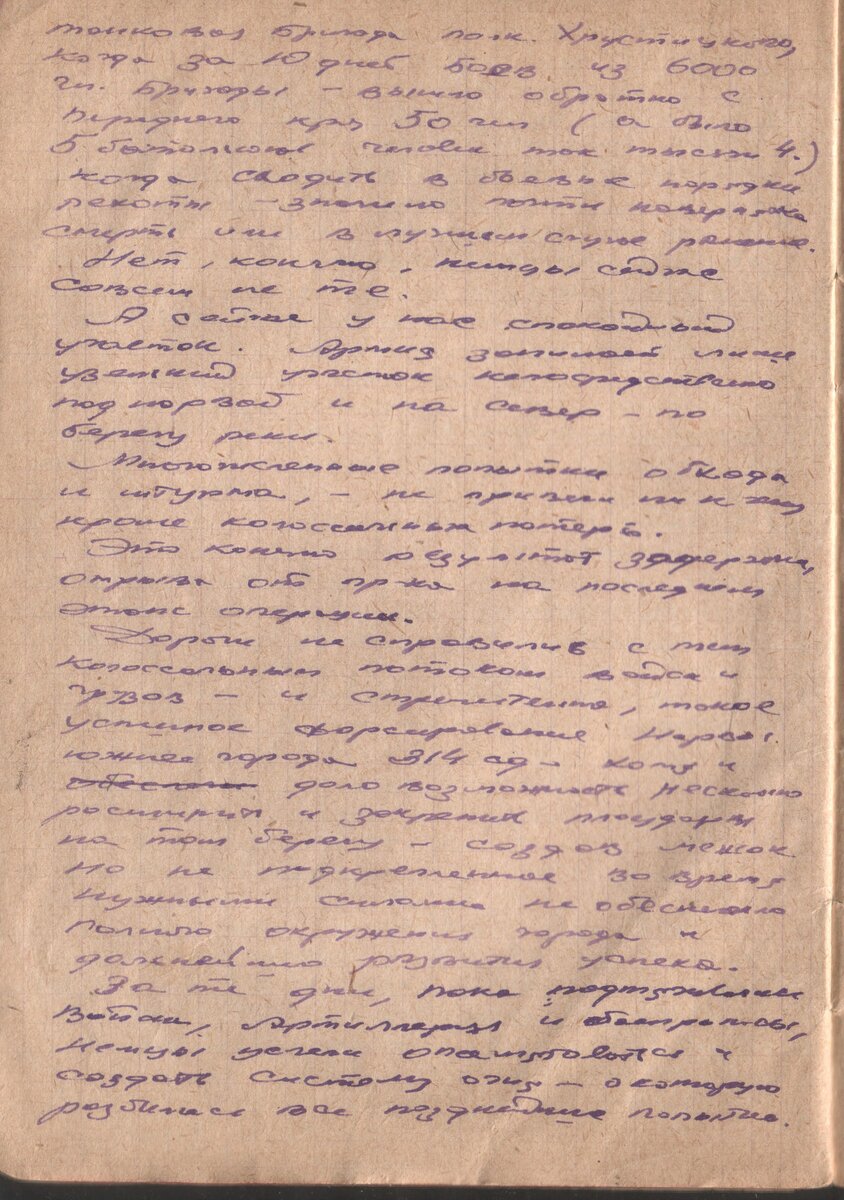 танковая бригада полк. Хрустицкого,
когда за 10 дней боев из 6000
чл. бригады – вышло обратно с
переднего края 50 чел (а было
5 батальонов человек так тысячи 4.)
когда сходить в боевые порядки
пехоты – значило почти наверняка
смерть или в лучшем случае ранение.
Нет, конечно, немцы сейчас
совсем не те.
А сейчас у нас спокойный
участок. Армия занимает лишь
узенький участок непосредственно
под Нарвой и на север – по
берегу реки.
Многочисленные попытки обхода
и штурма, – не привели ни к чему
кроме колоссальных потерь.
Это конечно результат задержки,
отрыва от пр-ка на последнем
этапе операции.
Дороги не справились с тем
колоссальным потоком войск и
грузов – и стремительное, такое
успешное форсирование Нарвы
южнее города 314 сд – хотя и
дало возможность несколько
расширить и закрепить плацдарм
на том берегу – создав мешок
но не подкрепленное во время
нужными силами не обеспечило
полного окружения города и
дальнейшего развития успеха.
За те дни, пока подтягивали
войска, артиллерию и боеприпасы,
немцы успели опамятоваться и
создать систему огня – о которую
разбились все позднейшие попытки.